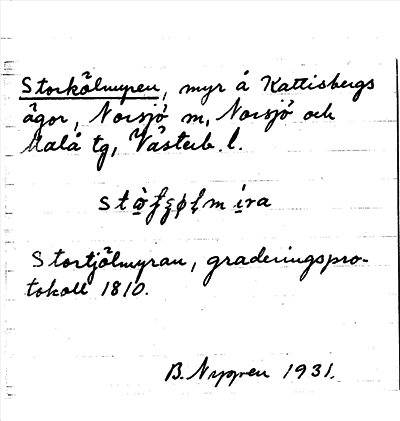 Storkölmyren, myr å Kattisbergs
ägor, Norsjö m, Norsjö och
Malå tg, Västerb. l.
Stortjölmyran, graderingspro-
tokoll 1810.
B. Nygren 1931.